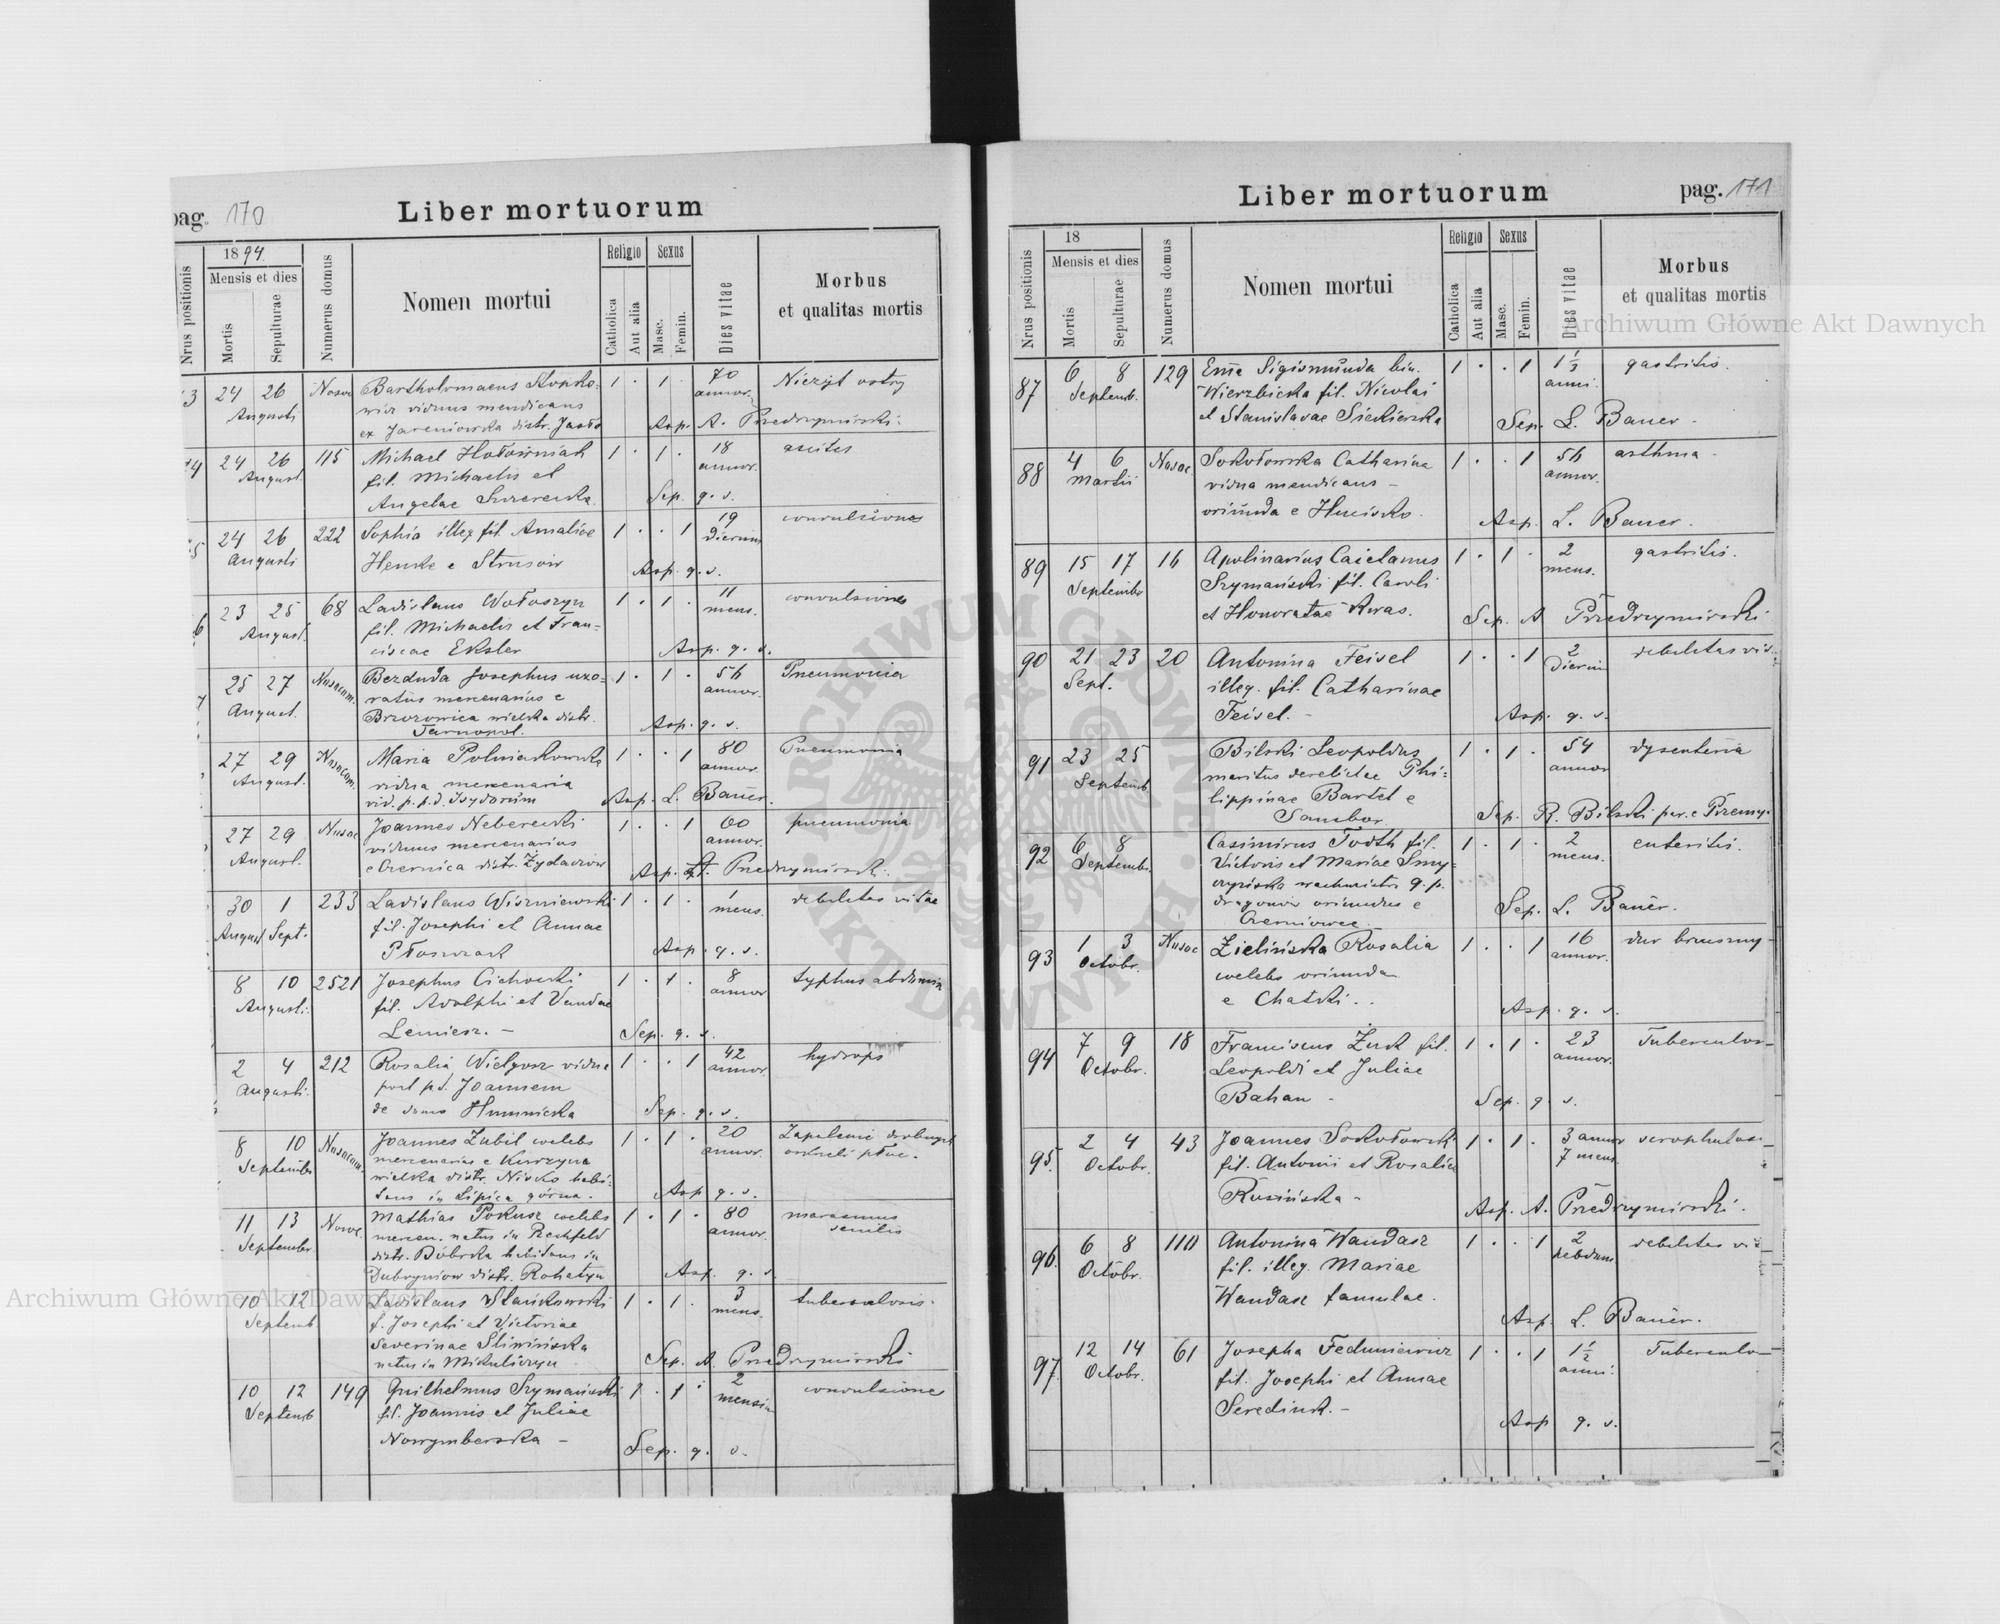 pag. 170
Liber mortuorum
Nrus positionis
1894
Mensis et dies
Mortis
Sepulturae
Numerus domus
Nomen mortui
Religio
Catholica
Aut alia
Sexus
Masc.
Femin.
Dies vitae
Morbus
et qualitas mortis
3 24 26 Bartholomaeus 1 . 1 . 70 Nieżyt ostry
Augusti viduus mendicans annor.
ex distr. Jasło Asp. A. Przedrzymirski.
4 24 26 115 Michael 1 . 1 . 18 ascites
August. fil. Michaelis et annor.
Angelae Sep. q. s.
5 24 26 222 Sophia illeg. fil. Amaliae 1 . . 1 19 convulsiones
Augusti Henke e Strusów dierum
Asp. q. s.
6 23 25 68 Ladislaus Wołoszyn 1 . 1 . 11 convulsiones
August. fil. Michaelis et Fran=
mens.
ciscae Eksler Asp. q. s.
7 25 27 Nosocom. Bezduda Josephus uxo= 1 . 1 . 56 Pneumonia
August. ratus mercenarius e annor.
Brzozowica wielka distr. Asp. q. s.
Tarnopol.
27 29 Nosocom. Maria 1 . . 1 80 Pneumonia
August. vidua mercenaria annor.
vid. p. p. d. Isydorum Asp. L. Bauer.
27 29 Nosoc Joannes Neberecki 1 . . 1 60 pneumonia
August. viduus mercenarius annor.
e Czernica distr. Żydaczów Asp. A. Przedrzymirski.
30 1 233 Ladislaus Wiszniewski 1 . 1 . 1 debilitas vitae
August Sept. fil. Josephi et Annae mens.
Płoszczak Asp. q. s.
8 10 2521 Josephus Cichocki 1 . 1 . 8 typhus abdomin
Augusti. fil. Adolphi et Vandae annor
Lemiesz. - Sep. q. s.
2 4 212 Rosalia Wielgosz vidua 1 . . 1 42 hydrops
Augusti. post p. d. Joannem annor.
de domo Humnicka Sep. q. s.
8 10 Nosocom. Joannes Zubil coelebs 1 . 1 . 20 Zapalenie drobnych
Septembr mercenarius e Kurzyna annor. oskrzeli płuc.
wielka distr. Nisko habi=
tans in Lipica górna. Asp q. s.
11 13 Nosoc. Mathias Pokusz coelebs 1 . 1 . 80 marasmus
Septembr. mercen. natus in Rechfeld annor. senilis
distr. Bóbrka habitans in
Dubryniów distr. Rohatyn Asp. q. s.
10 12 Ladislaus Stańkowski 1 . 1 . 3 tuberculosis.
Septemb f. Josephi et Victoriae mens.
Severinae Śliwińska
natus in Mikuliczyn Sep. A. Przedrzymirski
10 12 149 Guilhelmus Szymański 1 . 1 . 2 convulsiones
Septemb fil. Joannis et Juliae mensiu
Norymberska - Sep. q. s.
Liber mortuorum
pag. 171
Nrus positionis
18
Mensis et dies
Mortis
Sepulturae
Numerus domus
Nomen mortui
Religio
Catholica
Aut alia
Sexus
Masc.
Femin.
Dies vitae
Morbus
et qualitas mortis
87 6 8 129 Sigismunda bin. 1 . . 1 1 1/2 gastritis.
Septemb. Wierzbicka fil. Nicolai anni.
et Stanislavae Siekierska Sep. L. Bauer.
88 4 6 Nosoc Sokołowska Catharina 1 . . 1 56 asthma
Martii vidua mendicans - annor.
oriunda e Hucisko. Asp. L. Bauer.
89 15 17 16 Apolinarius Caietanus 1 . 1 . 2 gastritis.
Septembr Szymański fil. Caroli mens.
et Honoratae Kwas. Sep. A Przedrzymirski
90 21 23 20 Antonina Feisel 1 . . 1 2 debilitas vit.
Sept. illeg. fil. Catharinae dierum
Feisel. - Asp. q. s.
91 23 25 Bilski Leopoldus 1 . 1 . 54 dysenteria
Septemb maritus derelictae Phi= annor
lippinae Bartel e
Sambor. Sep. R. Bilski par. e Przemy.
92 6 8 Casimirus Tooth fil. 1 . 1 . 2 enteritis.
Septembr. Victoris et Mariae Smy= mens.
czyńska wachmistri q. p.
dragonów oriundus e Sep. L. Bauer.
Czerniowce
93 1 3 Nosoc Zielińska Rosalia 1 . . 1 16 dur brzuszny
Octobr. coelebs oriunda annor.
e Chatki. . Asp. q. s.
94 7 9 18 Franciscus Żuk fil. 1 . 1 . 23 Tuberculos
Octobr. Leopoldi et Juliae annor.
Bahan - Sep. q. s.
95. 2 4 43 Joannes Sokołowski 1 . 1 . 3 annor scrophulosi
Octobr. fil. Antonii et Rosaliae 7 mens.
Rusińska - Asp. A. Przedrzymirski.
96. 6 8 110 Antonina Wandasz 1 . . 1 2 debilitas vit
Octobr. fil. illeg. Mariae hebdom
Wandasz famulae. Asp. L. Bauer.
97. 12 14 61 Josepha Feduniewicz 1 . . 1 1 1/2 Tuberculo
Octobr. fil. Josephi et Annae anni.
Serediuk. - Asp q. s.
Archiwum Główne Akt Dawnych
Archiwum Główne Akt Dawnych
ARCHIWUM GŁÓWNE
AKT DAWNYCH